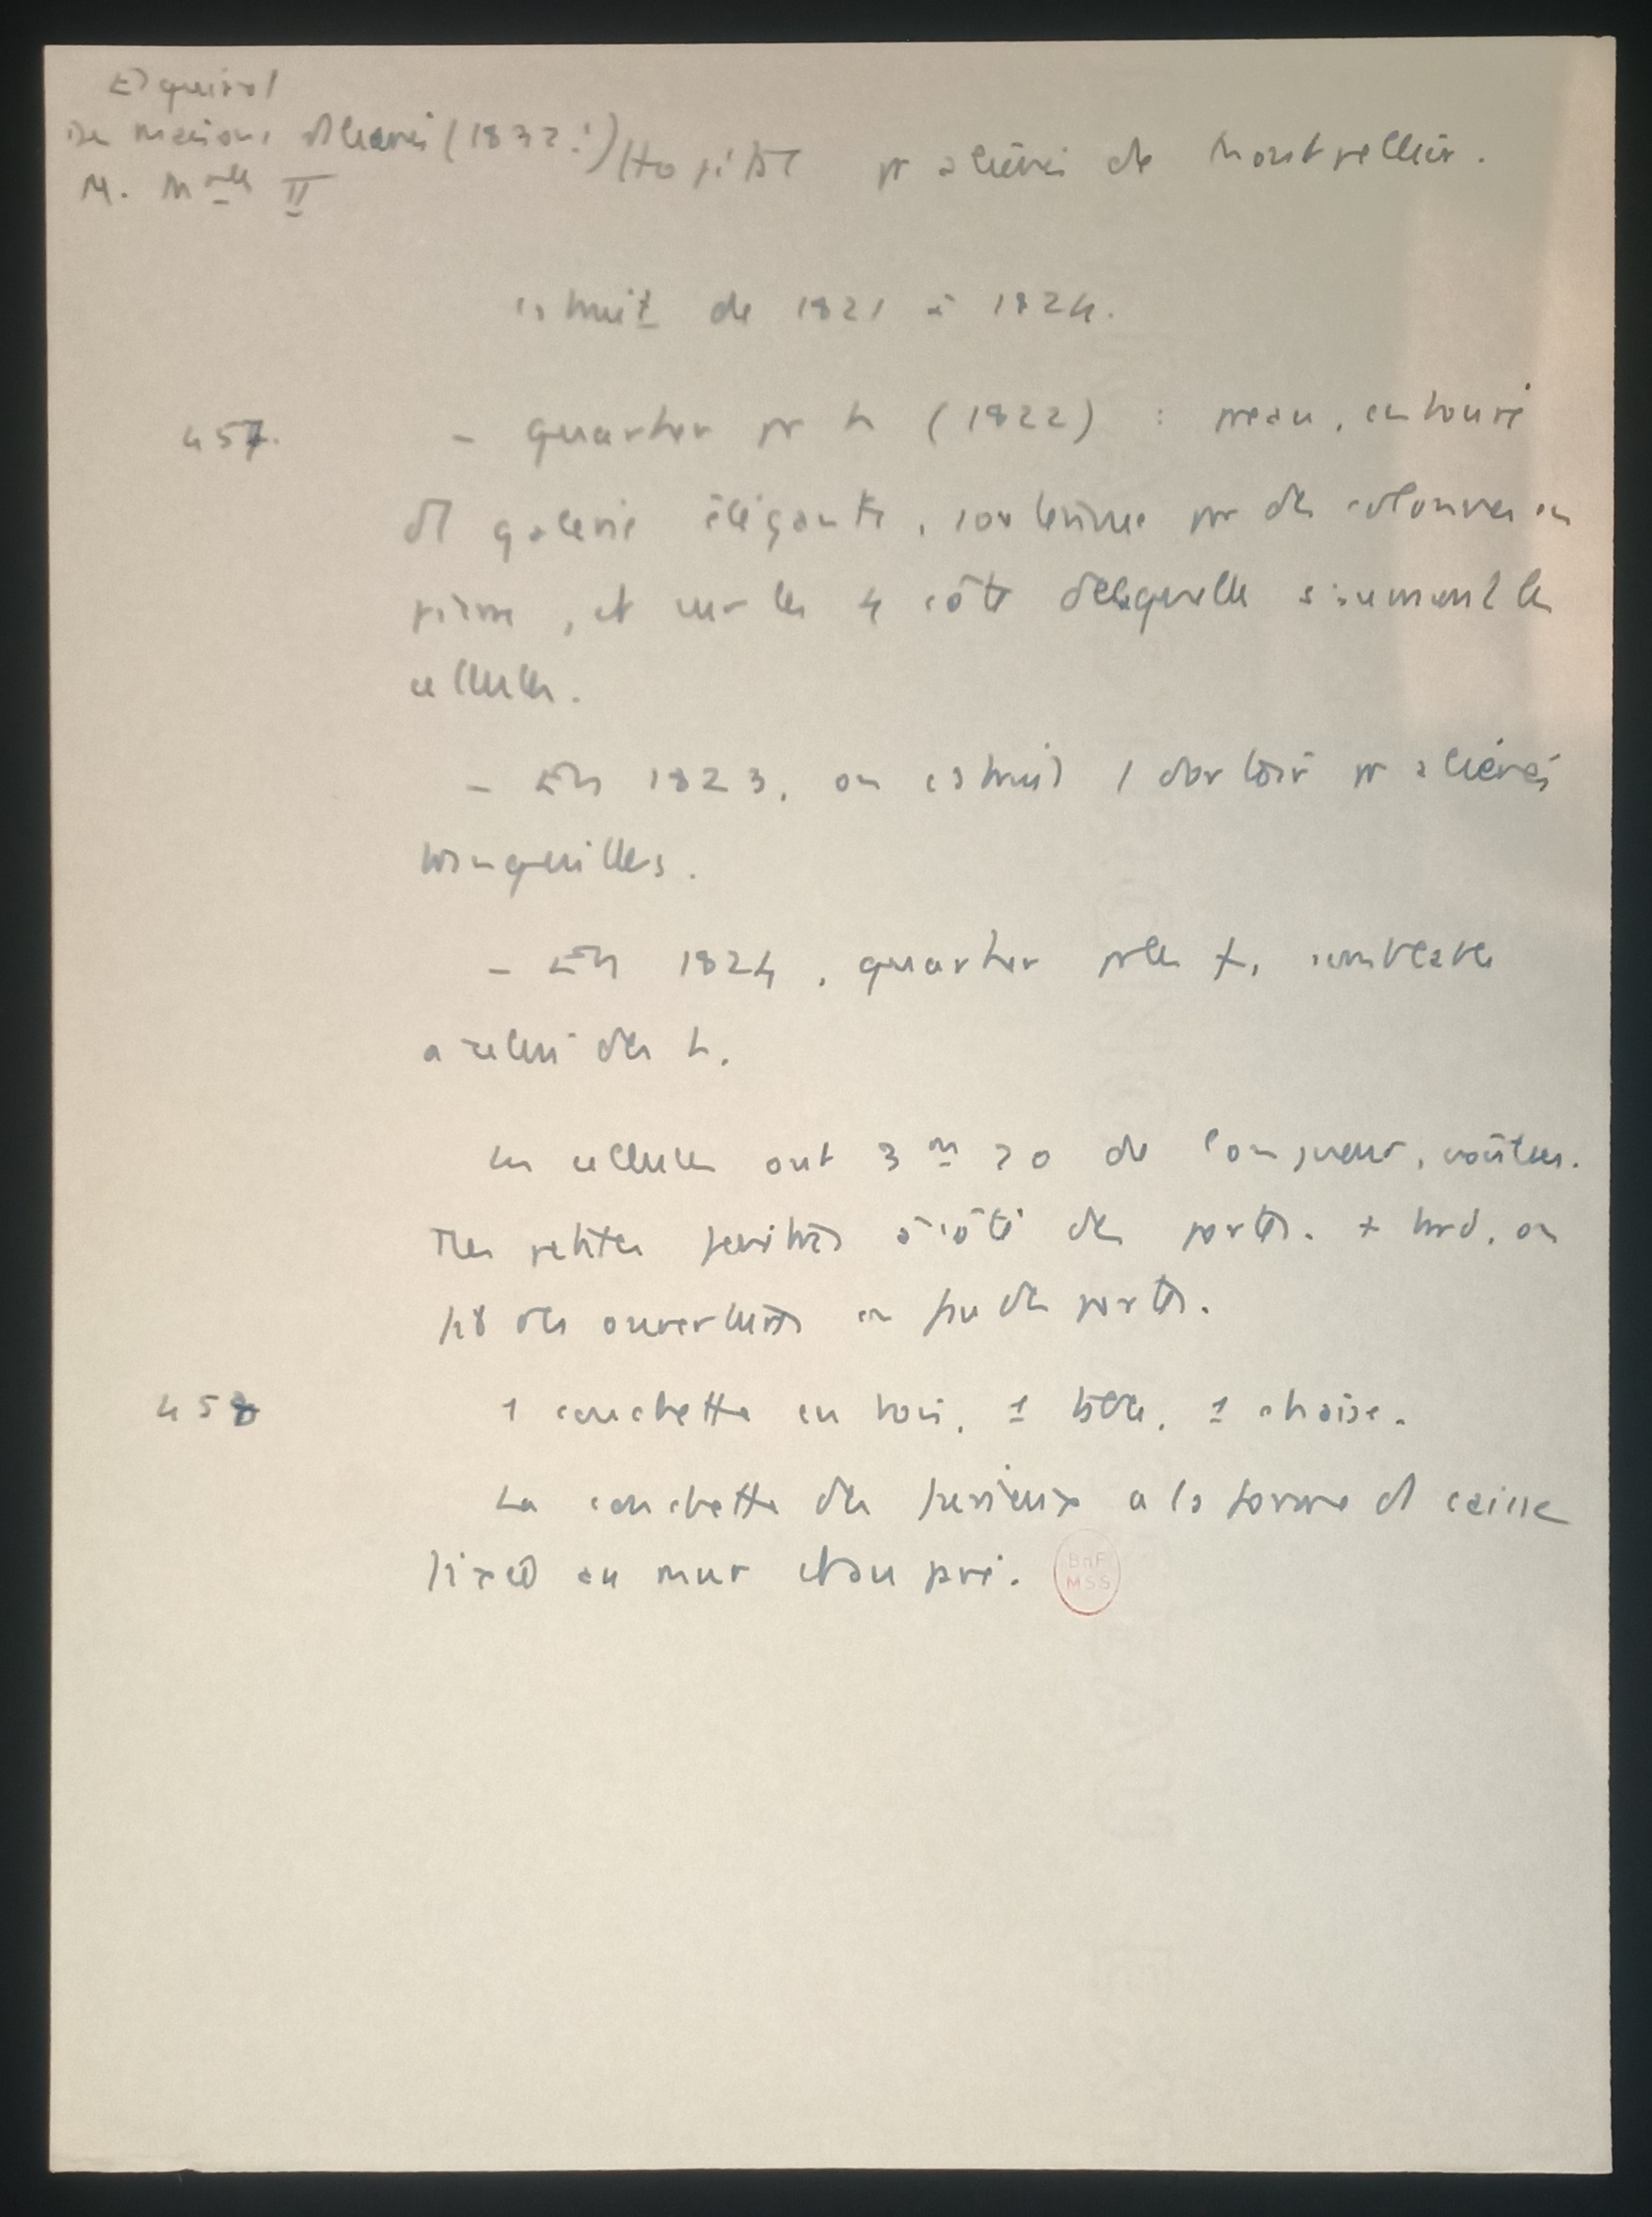 Esquirol
Des maisons d'aliénés (1832 !)
M. Mles II
Hopital pr aliénés de Montpellier.
cstruit de 1821 à 1824.
457. – quartier pr h (1822) : preau, entouré
d'1 galerie élégante, soutenue par des colonnes en
pierre, et sur les 4 côtés de laquelle s'ouvrent les
cellules.
– En 1823, on cstruit 1 dortoir pr aliénés
tranquilles.
– En 1824, quartier pr les f, semblable
a celui des h.
Les cellules ont 3 m 20 de longueur, voûtées.
Des petites fenêtres à côté des portes. + tard, on
fit des ouvertures en face des portes.
458 1 couchette en bois, 1 table, 1 chaise.
La couchette des furieux a la forme d'1 caisse
fixée au mur et au pavé.
BnF
MSS